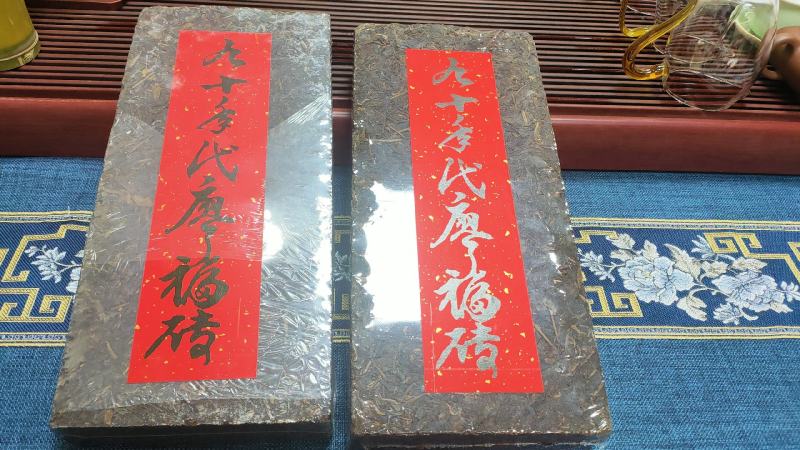 九十年代廖福砖
九十年代廖福砖